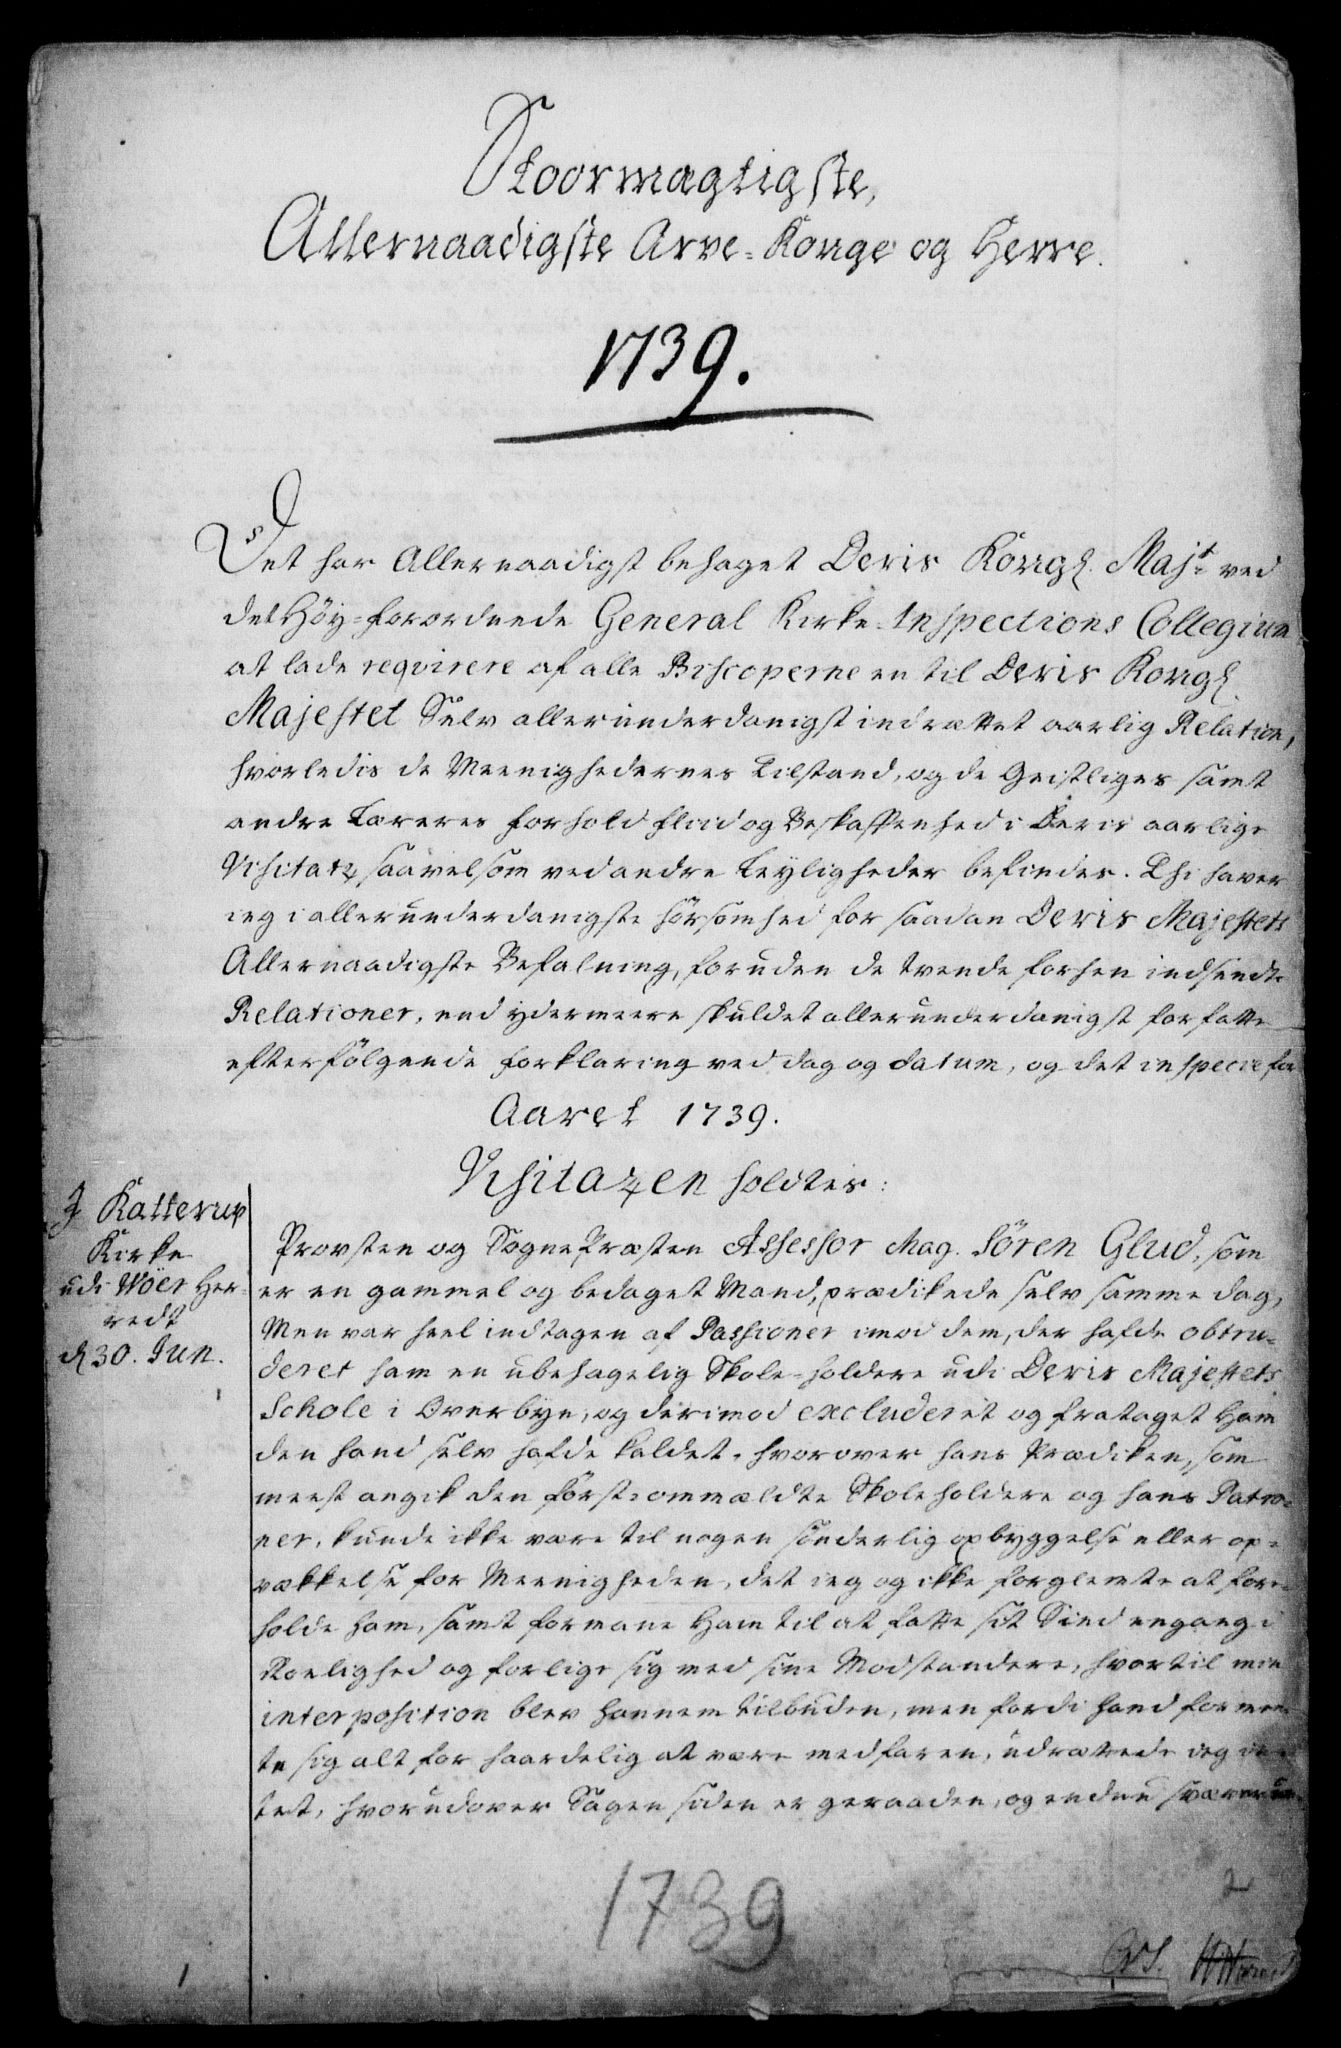 Stoormægtigste,
Allernaadigste Arve-Konge og Herre.
1739.
Det har Allernaadigst behaget Deris Kongl. Majt. ved
det Høy-forordnede General Kirke-Inspections Collegium
at lade reqvirere af alle Biscoperne en til Deris Kongl.
Majestet Selv allerunderdanigst indrættet aarlig Relation,
hvorledis de Meenighedernes Tilstand, og de Geistliges samt
andre Læreres forhold fliid og Beskaffenhed i Deris aarlige
Visitatz, saavelsom ved andre Leyligheder befindes. Thi haver
ieg i allerunderdanigste hørsomhed for saadan Deris Majestets
Allernaadigste Befalning, foruden de trende forhen indsendte
Relationer, end ydermeere skuldet allerunderdanigst forfatte
efterfølgende forklaring ved dag og datum, og det in specie for
Aaret 1739.
Visitatzen holdtes:
I Katterup
Kirke
udi Wöer Her-
redt
d. 30. Jun.
Provsten og SognePræsten Assessor Mag. Sören Glud, som
er en gammel og bedaget Mand, prædikede selv samme dag,
Men var heel indtagen af Passioner imod dem, der hafde obtru-
deret ham en ubehagelig Skole-holdere udi Deris Majestets
Schole i Overbye, og derimod excluderet og frataget Ham
den hand selv hafde kaldet, hvorover hans Prædiken, som
meest angik den først-ommældte Skoleholdere og hans Patro-
ner, kunde ikke være til nogen sønderlig opbyggelse eller op-
vækkelse for Meenigheden, det ieg og ikke forglemte at fore-
holde Ham, samt formane Ham til at fatte sit Sind engang i
Roelighed og forlige sig med sine Modstandere, hvortil min
interposition blev hannem tilbuden, men fordi hand formeen-
te sig alt for haardelig at være medfaren, udrættede ieg in-
tet, hvorudover Sagen siden er geraaden, og endnu svæver
1739
2
1